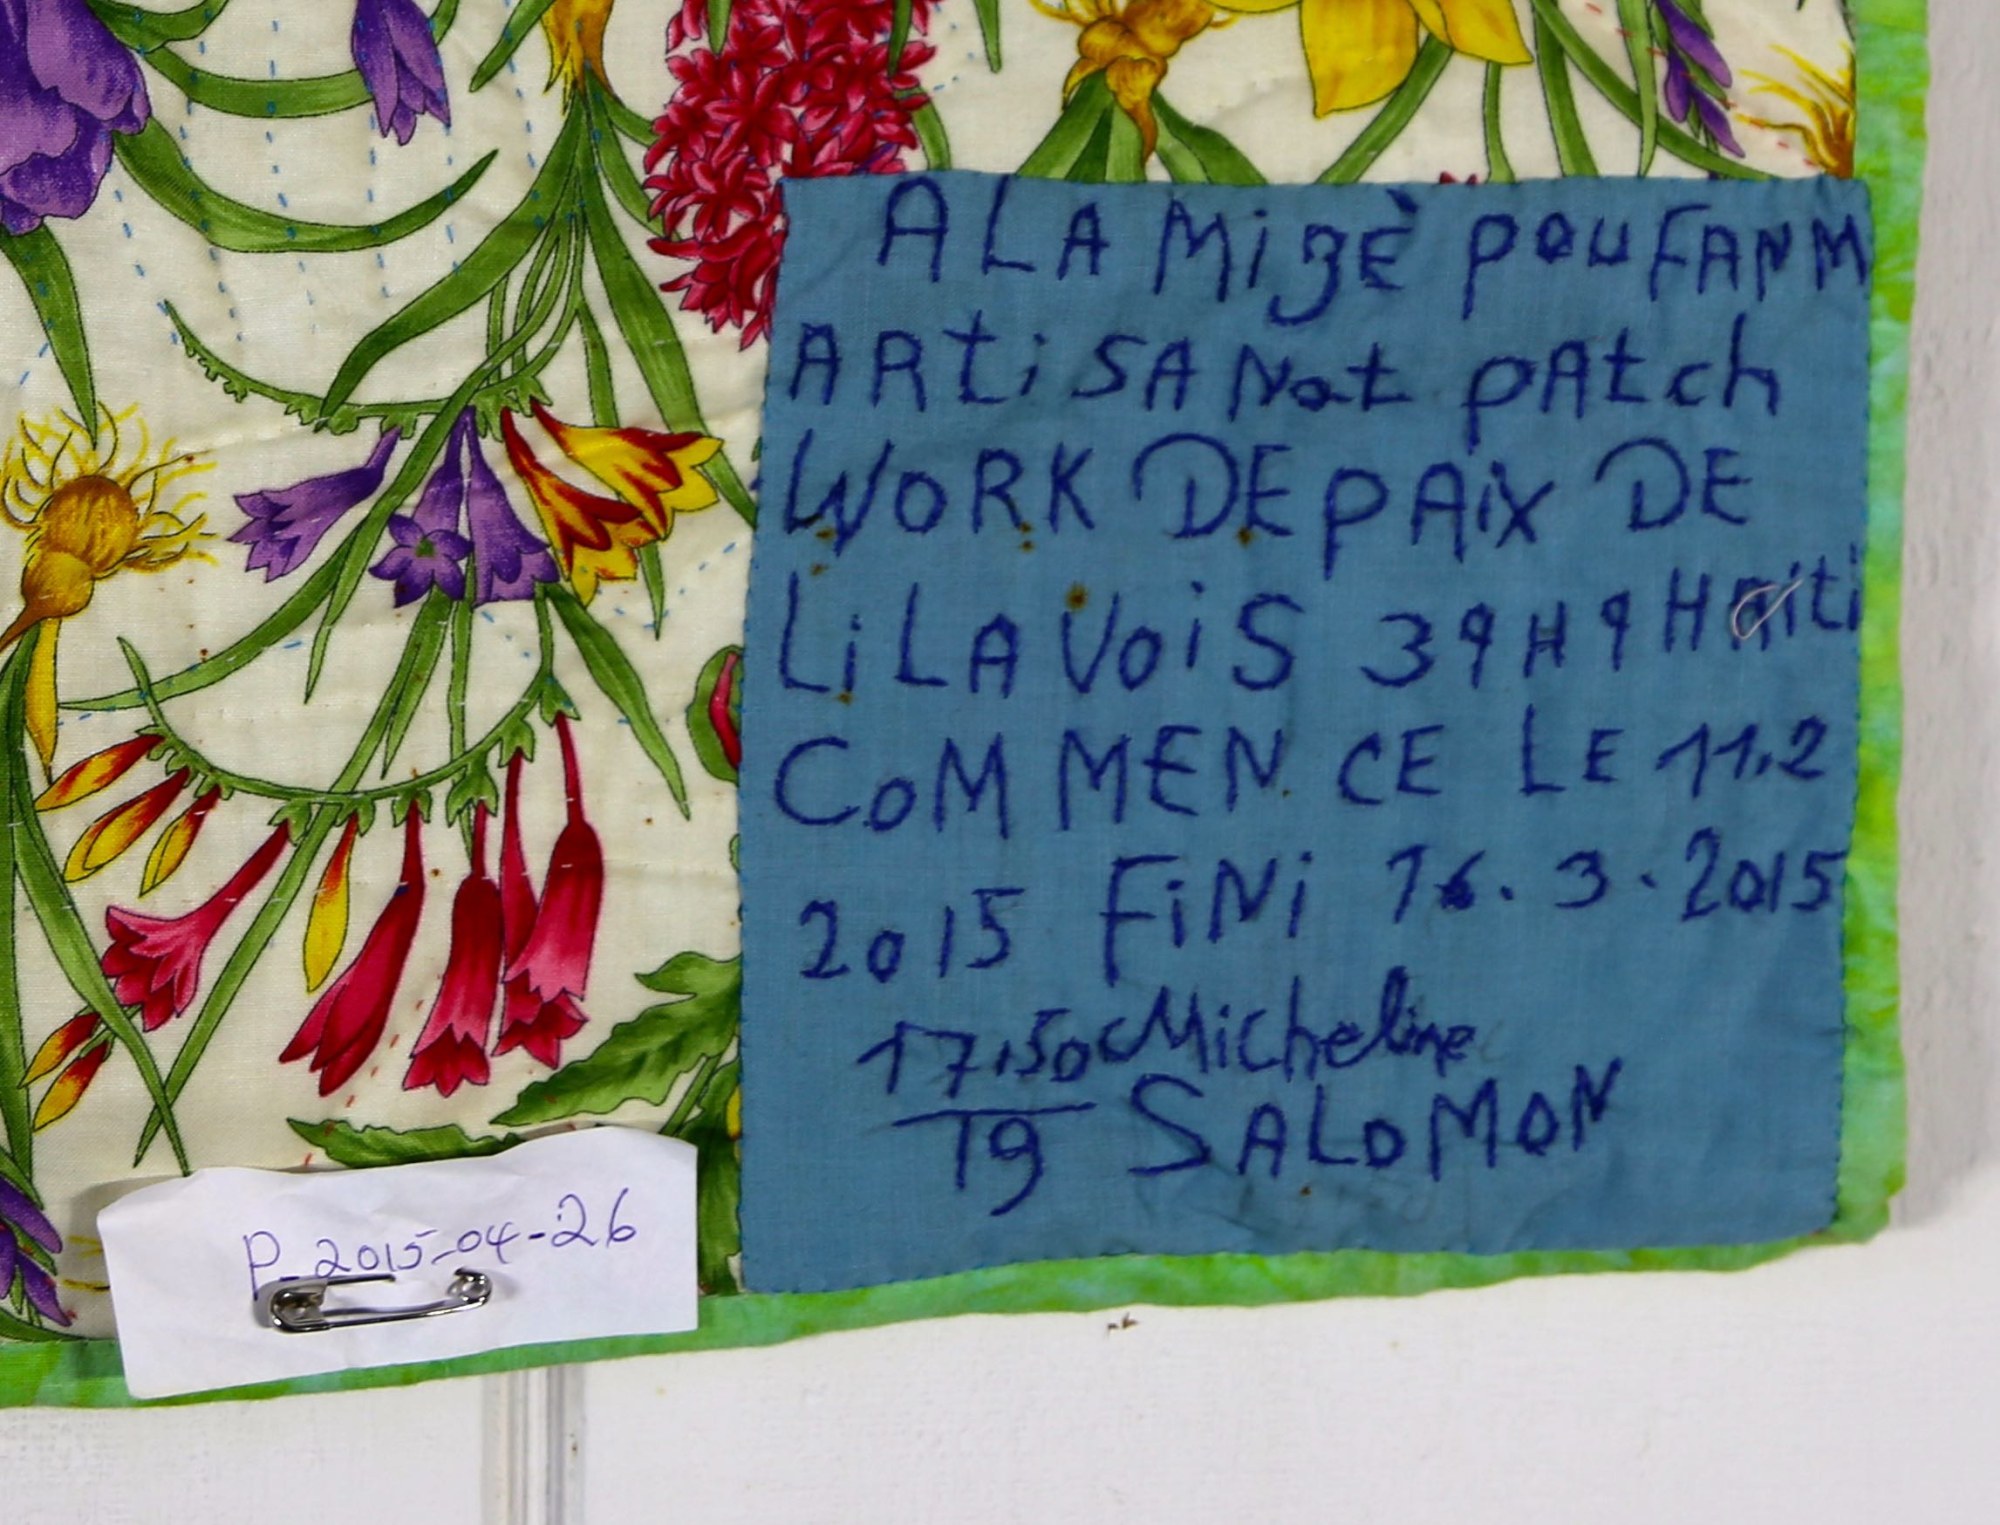 ALA MizÈ pou FANM
ARtiSANat pAtch
WORK DE pAix DE
LiLAVoiS 39 H9 Haiti
CoMMENCE LE 11.2
2015 FiNi 16.3.2015
17.50 Micheline
19 SALOMON
P-2015-04-26